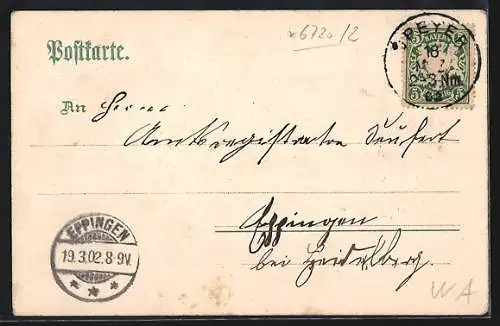 x6720/2
SPEYER
18
2-3 Nm.
BAYERN
5 5
Postkarte.
An Herrn
Amtsregistrator Seufert
Eppingen
bei Heidelberg.
EPPINGEN
19.3.02.8-9V.
WA